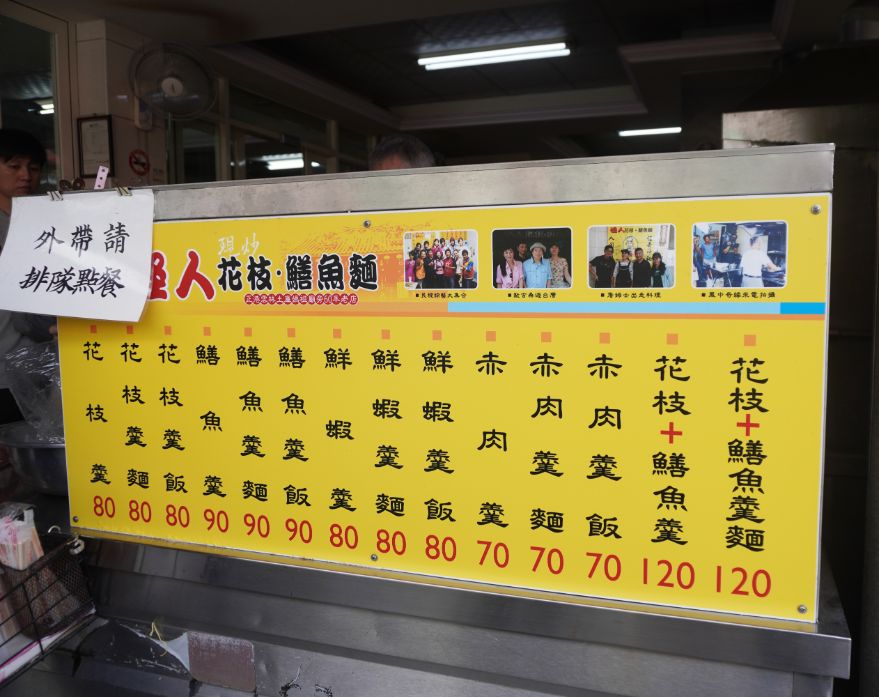 外帶請
排隊點餐
現炒
花枝·鱔魚麵
花枝羹 80
花枝羹麵 80
花枝羹飯 80
鱔魚羹 90
鱔魚羹麵 90
鱔魚羹飯 90
鮮蝦羹 80
鮮蝦羹麵 80
鮮蝦羹飯 80
赤肉羹 70
赤肉羹麵 70
赤肉羹飯 70
花枝+鱔魚羹 120
花枝+鱔魚羹麵 120